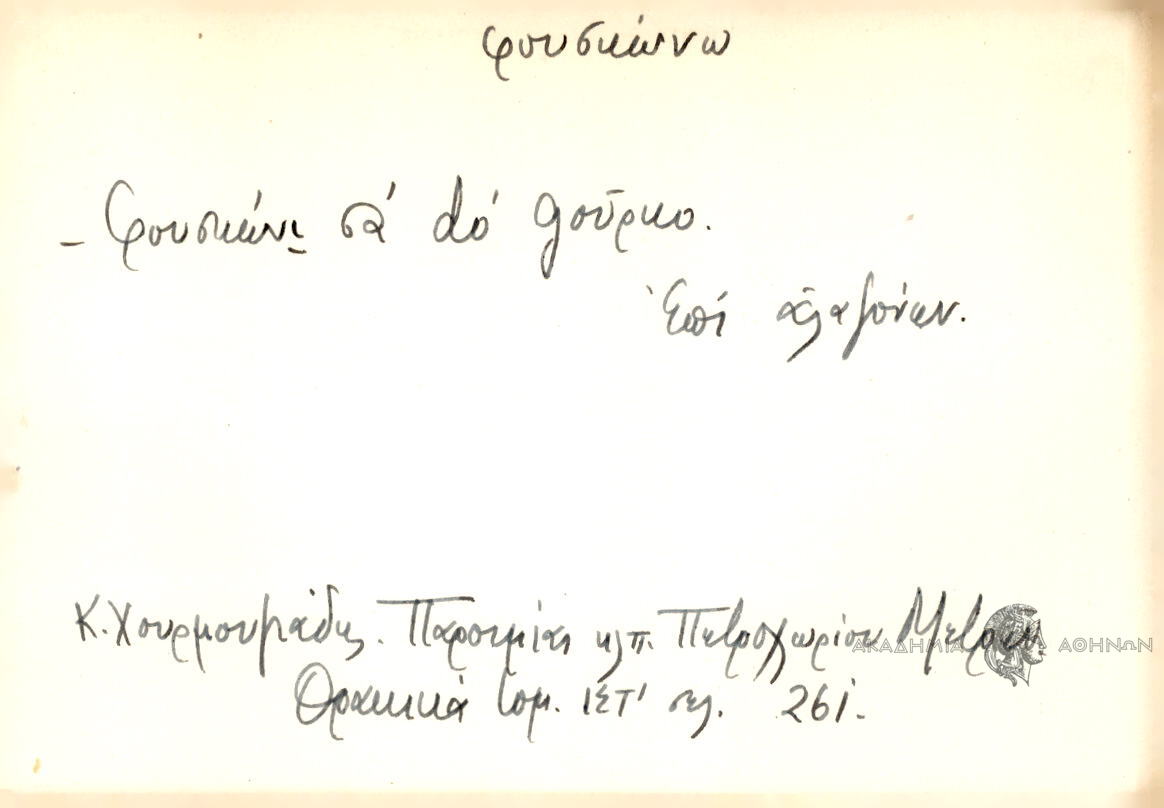 φουσκώνω
- Φουσκώνι σά dό gοῦρκο.
Ἐπί ἀλαζόνων.
Κ. Χουρμουζιάδης. Παροιμίαι κλπ. Πετροχωρίου Μετρῶν
Θρακικά τομ. ΙΣΤ' σελ. 261.
ΑΚΑΔΗΜΙΑ ΑΘΗΝΩΝ